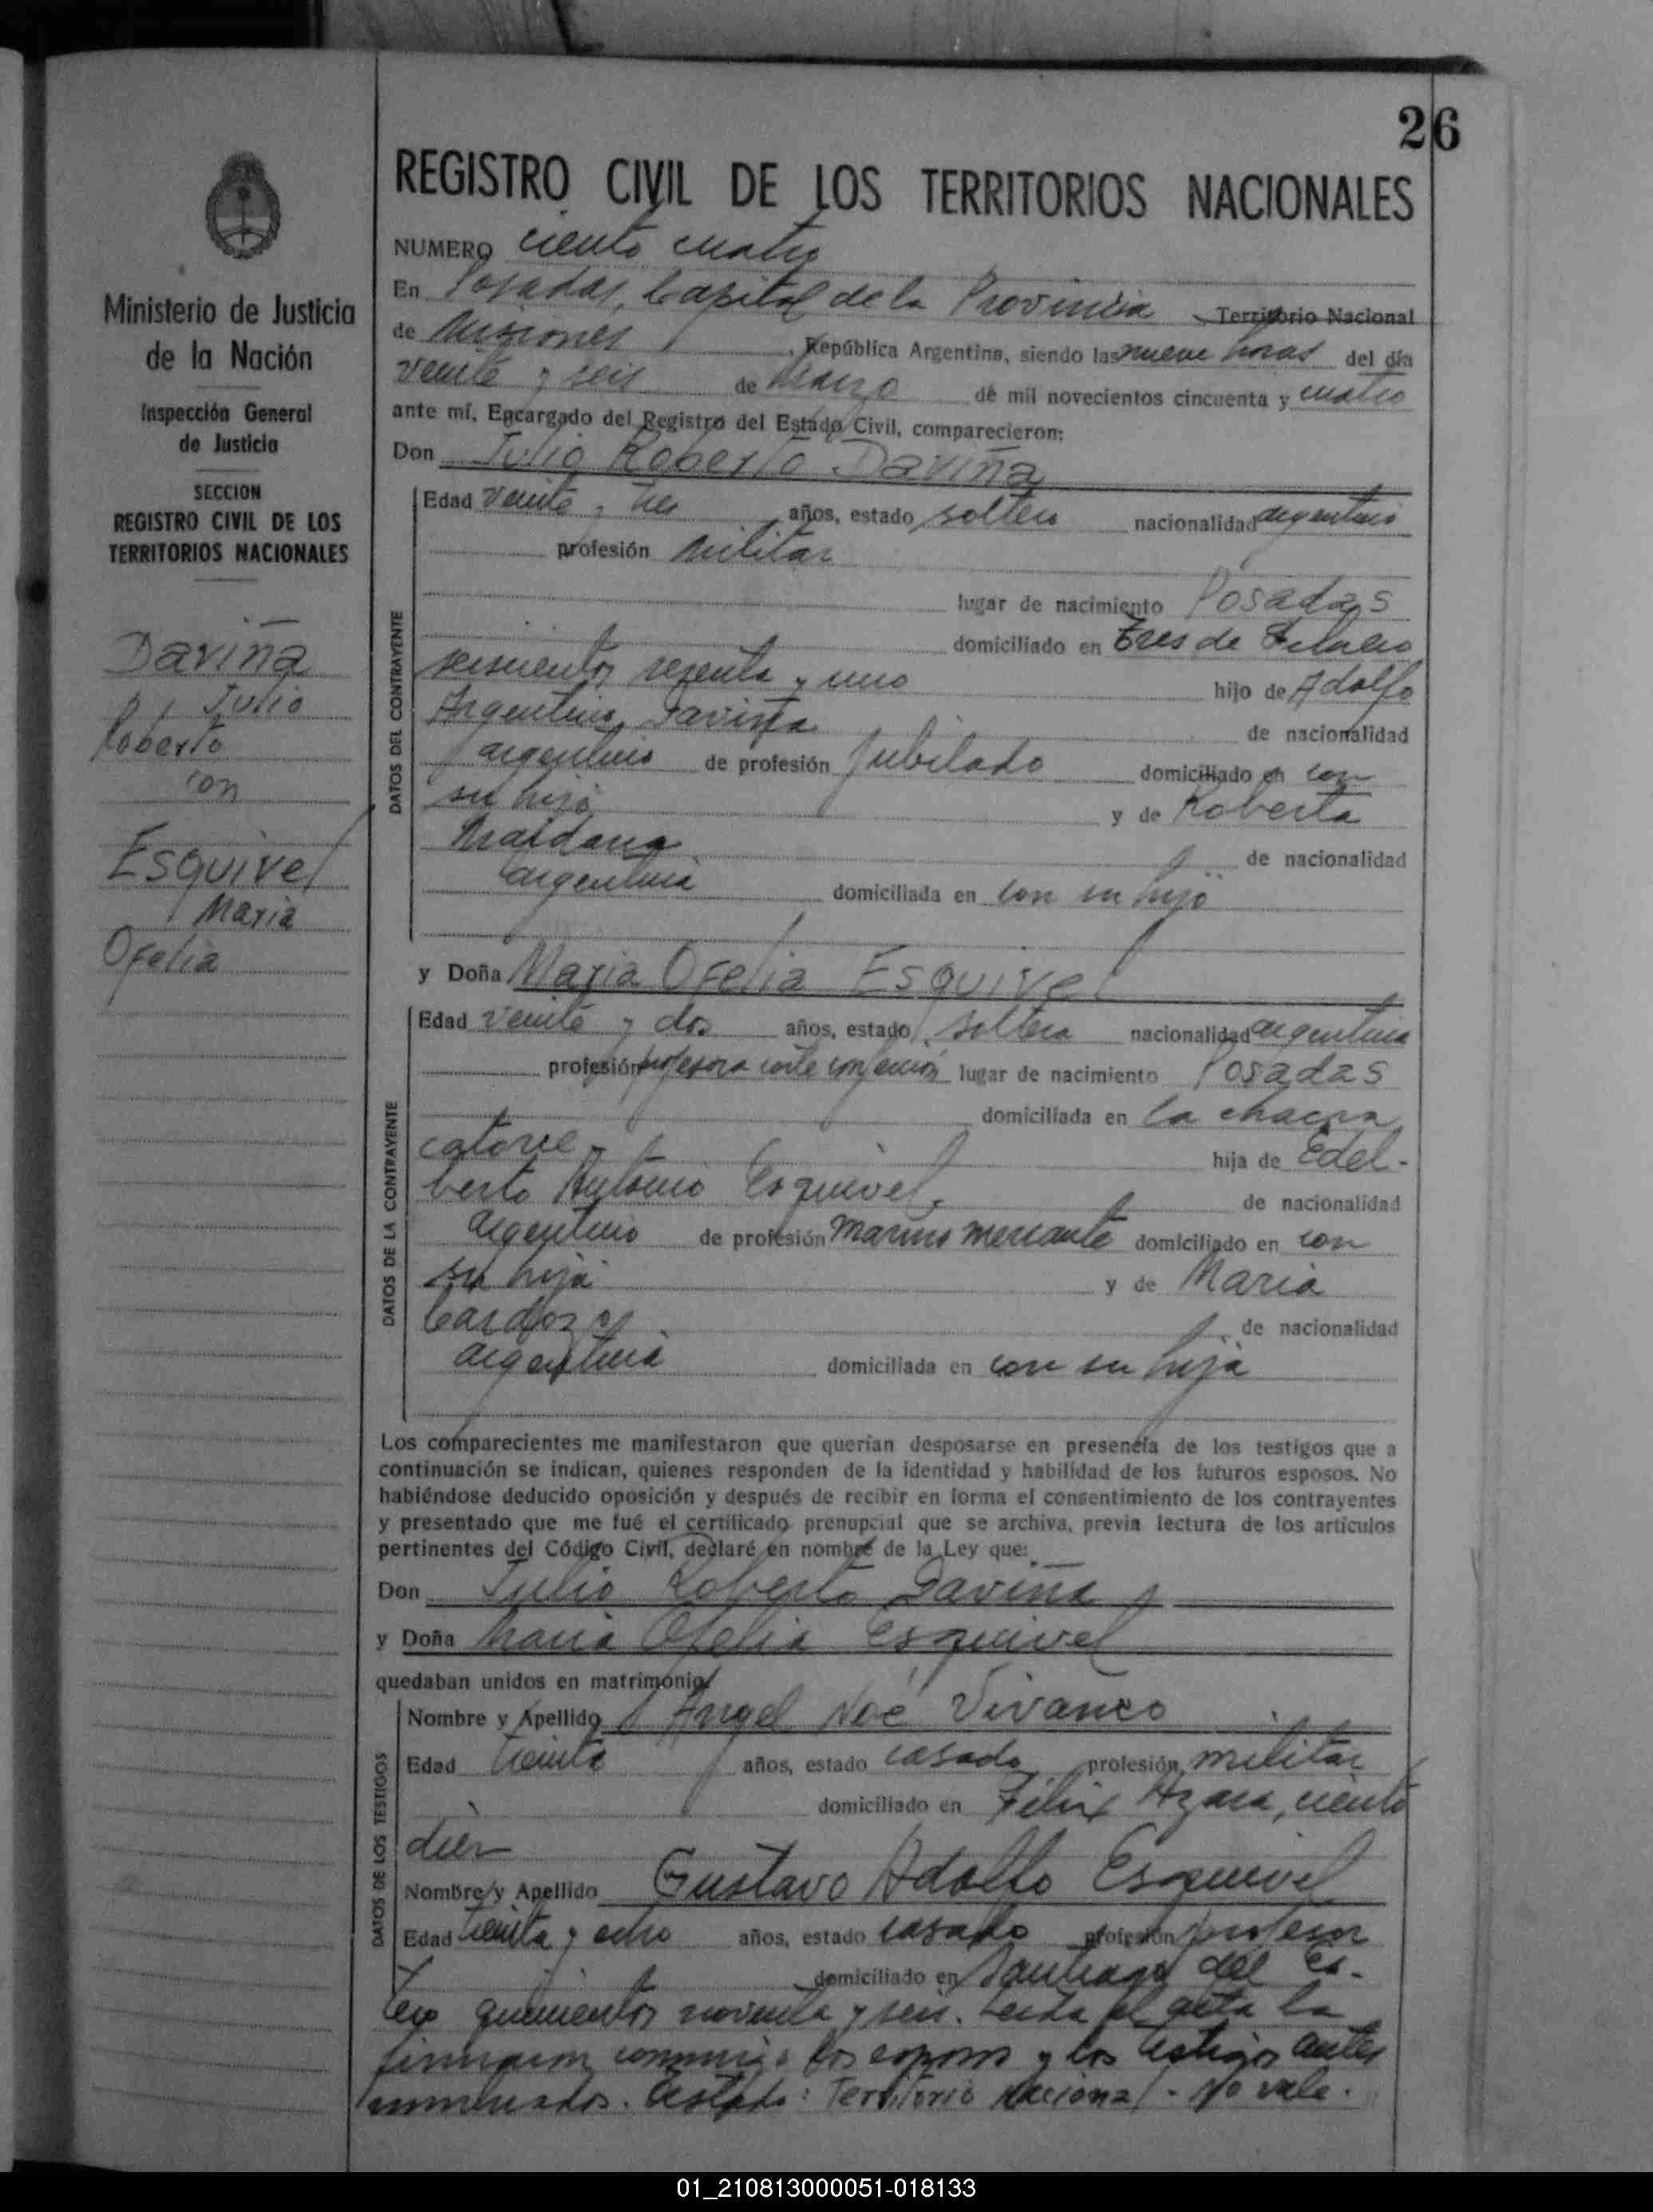 26
REGISTRO CIVIL DE LOS TERRITORIOS NACIONALES
Ministerio de Justicia
de la Nación
Inspección General
de Justicia
SECCION
REGISTRO CIVIL DE LOS
TERRITORIOS NACIONALES
Daviña
Julio
Roberto
con
Esquivel
Maria
Ofelia
NUMERO ciento cuatro
En Posadas, Capital de la Provincia Territorio Nacional
de Misiones, República Argentina, siendo las nueve horas del día
veinte y seis de Marzo de mil novecientos cincuenta y cuatro
ante mí, Encargado del Registro del Estado Civil, comparecieron:
Don Julio Roberto Daviña
DATOS DEL CONTRAYENTE
Edad veinte y tres años, estado soltero nacionalidad argentino
profesión militar
lugar de nacimiento Posadas
domiciliado en Tres de Febrero
seiscientos sesenta y uno hijo de Adolfo
Argentino Daviña de nacionalidad
argentino de profesión jubilado domiciliado en con
su hijo y de Roberta
Maidana de nacionalidad
argentina domiciliada en con su hijo
y Doña Maria Ofelia Esquivel
DATOS DE LA CONTRAYENTE
Edad veinte y dos años, estado soltera nacionalidad argentina
profesión profesora corte confección lugar de nacimiento Posadas
domiciliada en la chacra
catorce hija de Edel-
berto Antonio Esquivel, de nacionalidad
argentino de profesión marino mercante domiciliado en con
su hija y de Maria
Cardozo de nacionalidad
argentina domiciliada en con su hija
Los comparecientes me manifestaron que querían desposarse en presencia de los testigos que a
continuación se indican, quienes responden de la identidad y habilidad de los futuros esposos. No
habiéndose deducido oposición y después de recibir en forma el consentimiento de los contrayentes
y presentado que me fué el certificado prenupcial que se archiva, previa lectura de los artículos
pertinentes del Código Civil, declaré en nombre de la Ley que:
Don Julio Roberto Daviña
y Doña Maria Ofelia Esquivel
quedaban unidos en matrimonio
DATOS DE LOS TESTIGOS
Nombre y Apellido Angel Noé Vivanco
Edad treinta años, estado casado profesión militar
domiciliado en Félix Azara, ciento
diez
Nombre y Apellido Gustavo Adolfo Esquivel
Edad treinta y ocho años, estado casado profesión profesor
domiciliado en Santiago del Es-
tero quinientos noventa y seis. Leida el acta la
firmaron conmigo los esposos y los testigos antes
nombrados. Testado: Territorio Nacional - No vale.
01_210813000051-018133